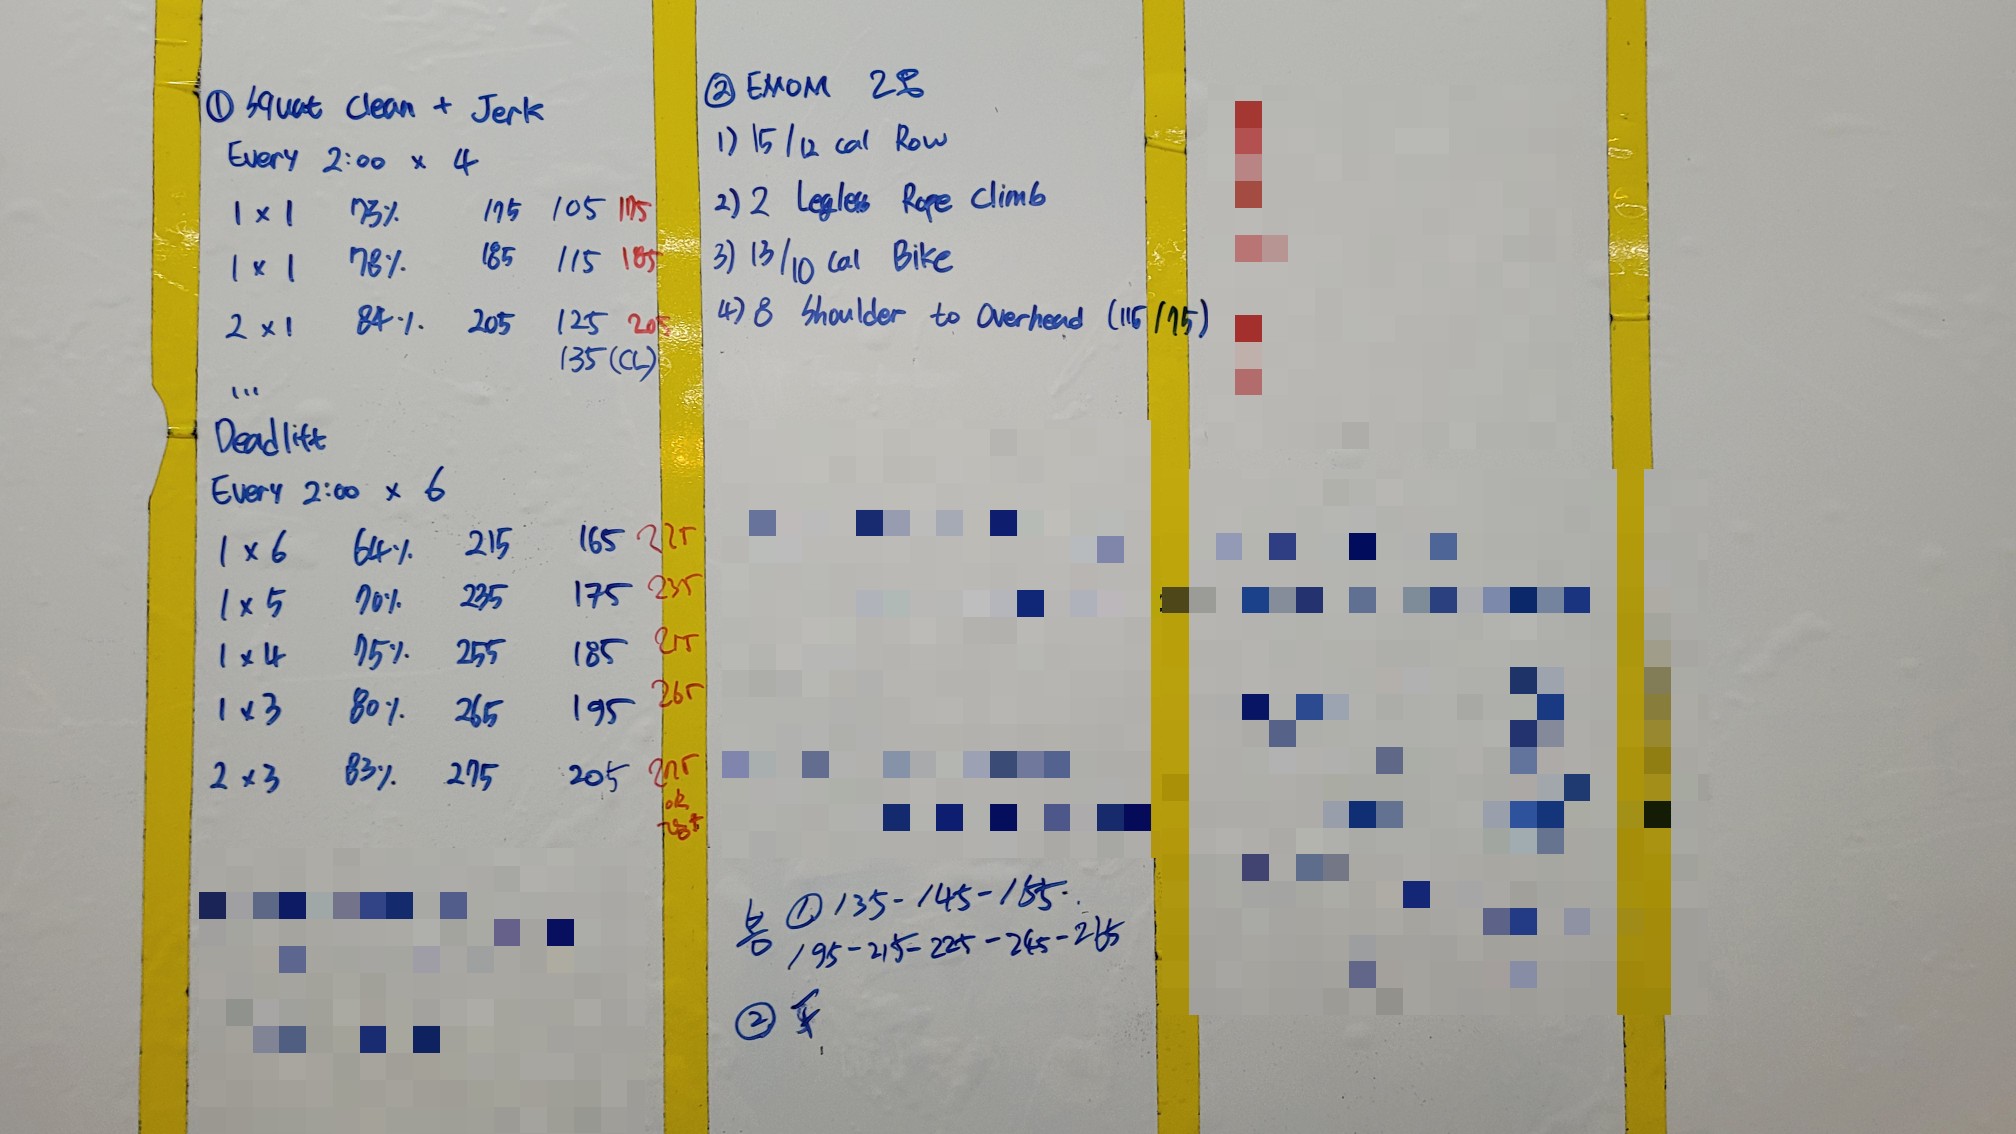 ① Squat Clean + Jerk
Every 2:00 x 4
1 x 1 73% 175 105 175
1 x 1 78% 185 115 185
2 x 1 84% 205 125 205
135 (CL)
...
Deadlift
Every 2:00 x 6
1 x 6 64% 215 165 225
1 x 5 70% 235 175 235
1 x 4 75% 255 185
1 x 3 80% 265 195 265
2 x 3 83% 275 205 275
ok
② EMOM
1) 15/12 cal Row
2) 2 Legless Rope Climb
3) 13/10 cal Bike
4) 8 Shoulder to Overhead (115/75)
봉 ① 135-145-165
195-215-225-245-265
②